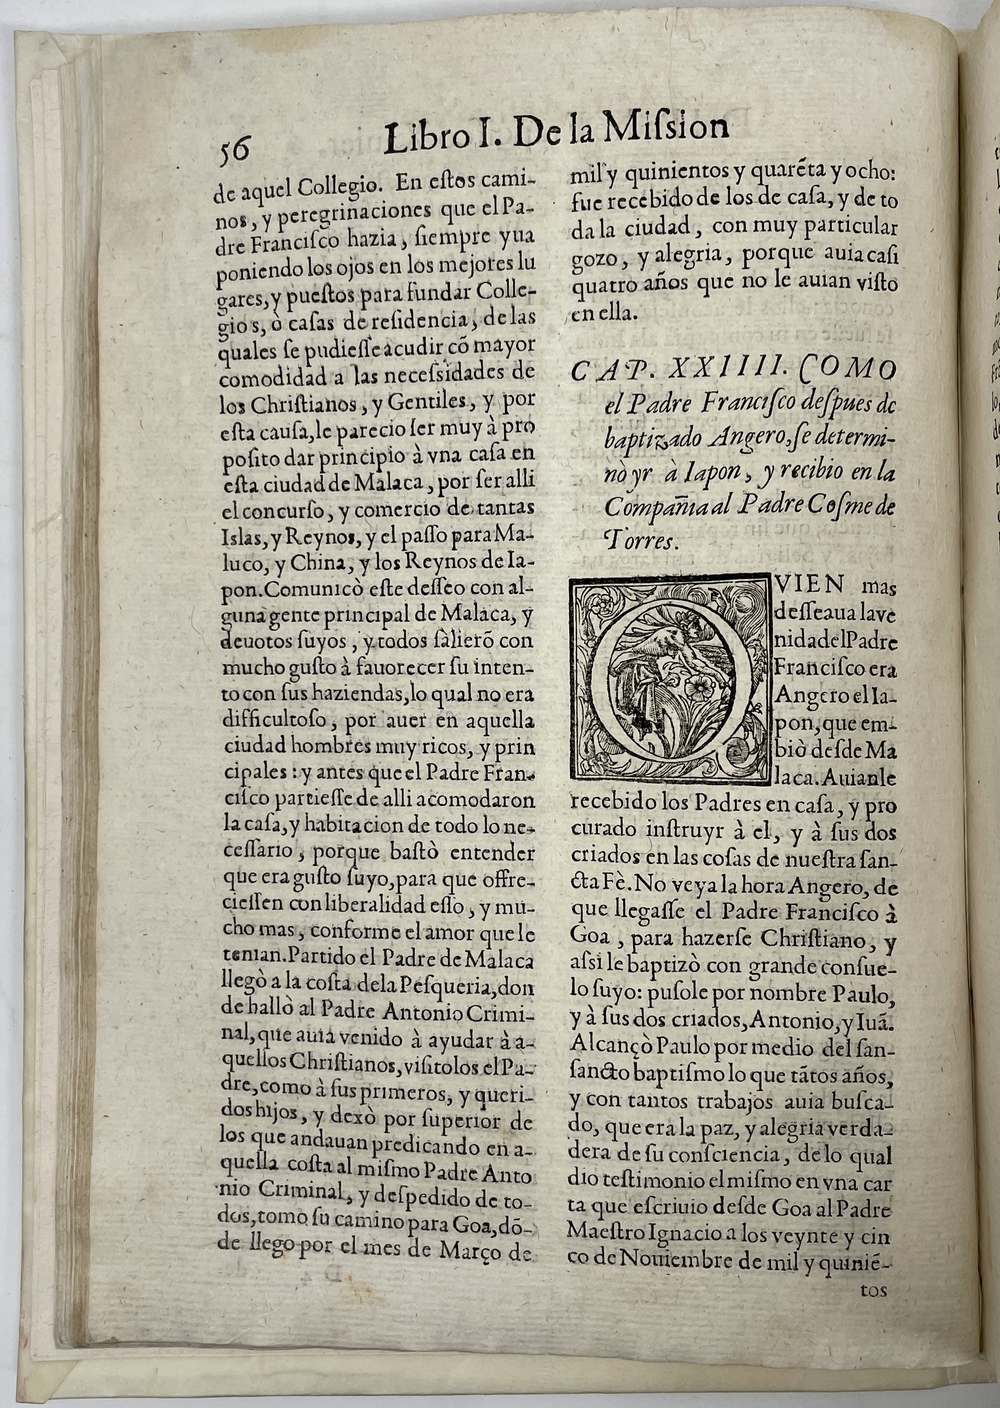 56
Libro I. De la Miſsion
de aquel Collegio. En eſtos cami-
nos, y peregrinaciones que el Pa-
dre Franciſco hazia, ſiempre yua
poniendo los ojos en los mejores lu
gares, y pueſtos para fundar Colle-
gios, ò caſas de reſidencia, de las
quales ſe pudieſſe acudir cõ mayor
comodidad a las neceſsidades de
los Chriſtianos, y Gentiles, y por
eſta cauſa, le parecio ſer muy à pro
poſito dar principio à vna caſa en
eſta ciudad de Malaca, por ſer alli
el concurſo, y comercio de tantas
Islas, y Reynos, y el paſſo para Ma-
luco, y China, y los Reynos de Ia-
pon. Comunicò eſte deſſeo con al-
guna gente principal de Malaca, y
deuotos ſuyos, y todos ſalierõ con
mucho guſto à fauorecer ſu inten-
to con ſus haziendas, lo qual no era
difficultoſo, por auer en aquella
ciudad hombres muy ricos, y prin
cipales: y antes que el Padre Fran-
ciſco partieſſe de alli acomodaron
la caſa, y habitacion de todo lo ne-
ceſſario, porque baſtò entender
que era guſto ſuyo, para que offre-
cieſſen con liberalidad eſſo, y mu-
cho mas, conforme el amor que le
tenian. Partido el Padre de Malaca
llegò a la coſta dela Peſqueria, don
de hallò al Padre Antonio Crimi-
nal, que auia venido à ayudar à a-
quellos Chriſtianos, viſitolos el Pa-
dre, como à ſus primeros, y queri-
dos hijos, y dexò por ſuperior de
los que andauan predicando en a-
quella coſta al miſmo Padre Anto
nio Criminal, y deſpedido de to-
dos, tomo ſu camino para Goa, dõ-
de llego por el mes de Março de
mil y quinientos y quarẽta y ocho:
fue recebido de los de caſa, y de to
da la ciudad, con muy particular
gozo, y alegria, porque auia caſi
quatro años que no le auian viſto
en ella.
CAP. XXIIII. COMO
el Padre Franciſco deſpues de
baptizado Angero, ſe determi-
nò yr à Iapon, y recibio en la
Compañia al Padre Coſme de
Torres.
QVIEN mas
deſſeaua la ve
nida del Padre
Franciſco era
Angero el Ia-
pon, que em-
biò deſde Ma
laca. Auianle
recebido los Padres en caſa, y pro
curado inſtruyr à el, y à ſus dos
criados en las coſas de nueſtra ſan-
cta Fè. No veya la hora Angero, de
que llegaſſe el Padre Franciſco à
Goa, para hazerſe Chriſtiano, y
aſsi le baptizò con grande conſue-
lo ſuyo: puſole por nombre Paulo,
y à ſus dos criados, Antonio, y Iuã.
Alcançò Paulo por medio del ſan-
ſancto baptiſmo lo que tãtos años,
y con tantos trabajos auia buſca-
do, que era la paz, y alegria verda-
dera de ſu conſciencia, de lo qual
dio teſtimonio el miſmo en vna car
ta que eſcriuio deſde Goa al Padre
Maeſtro Ignacio a los veynte y cin
co de Nouiembre de mil y quiniẽ-
tos